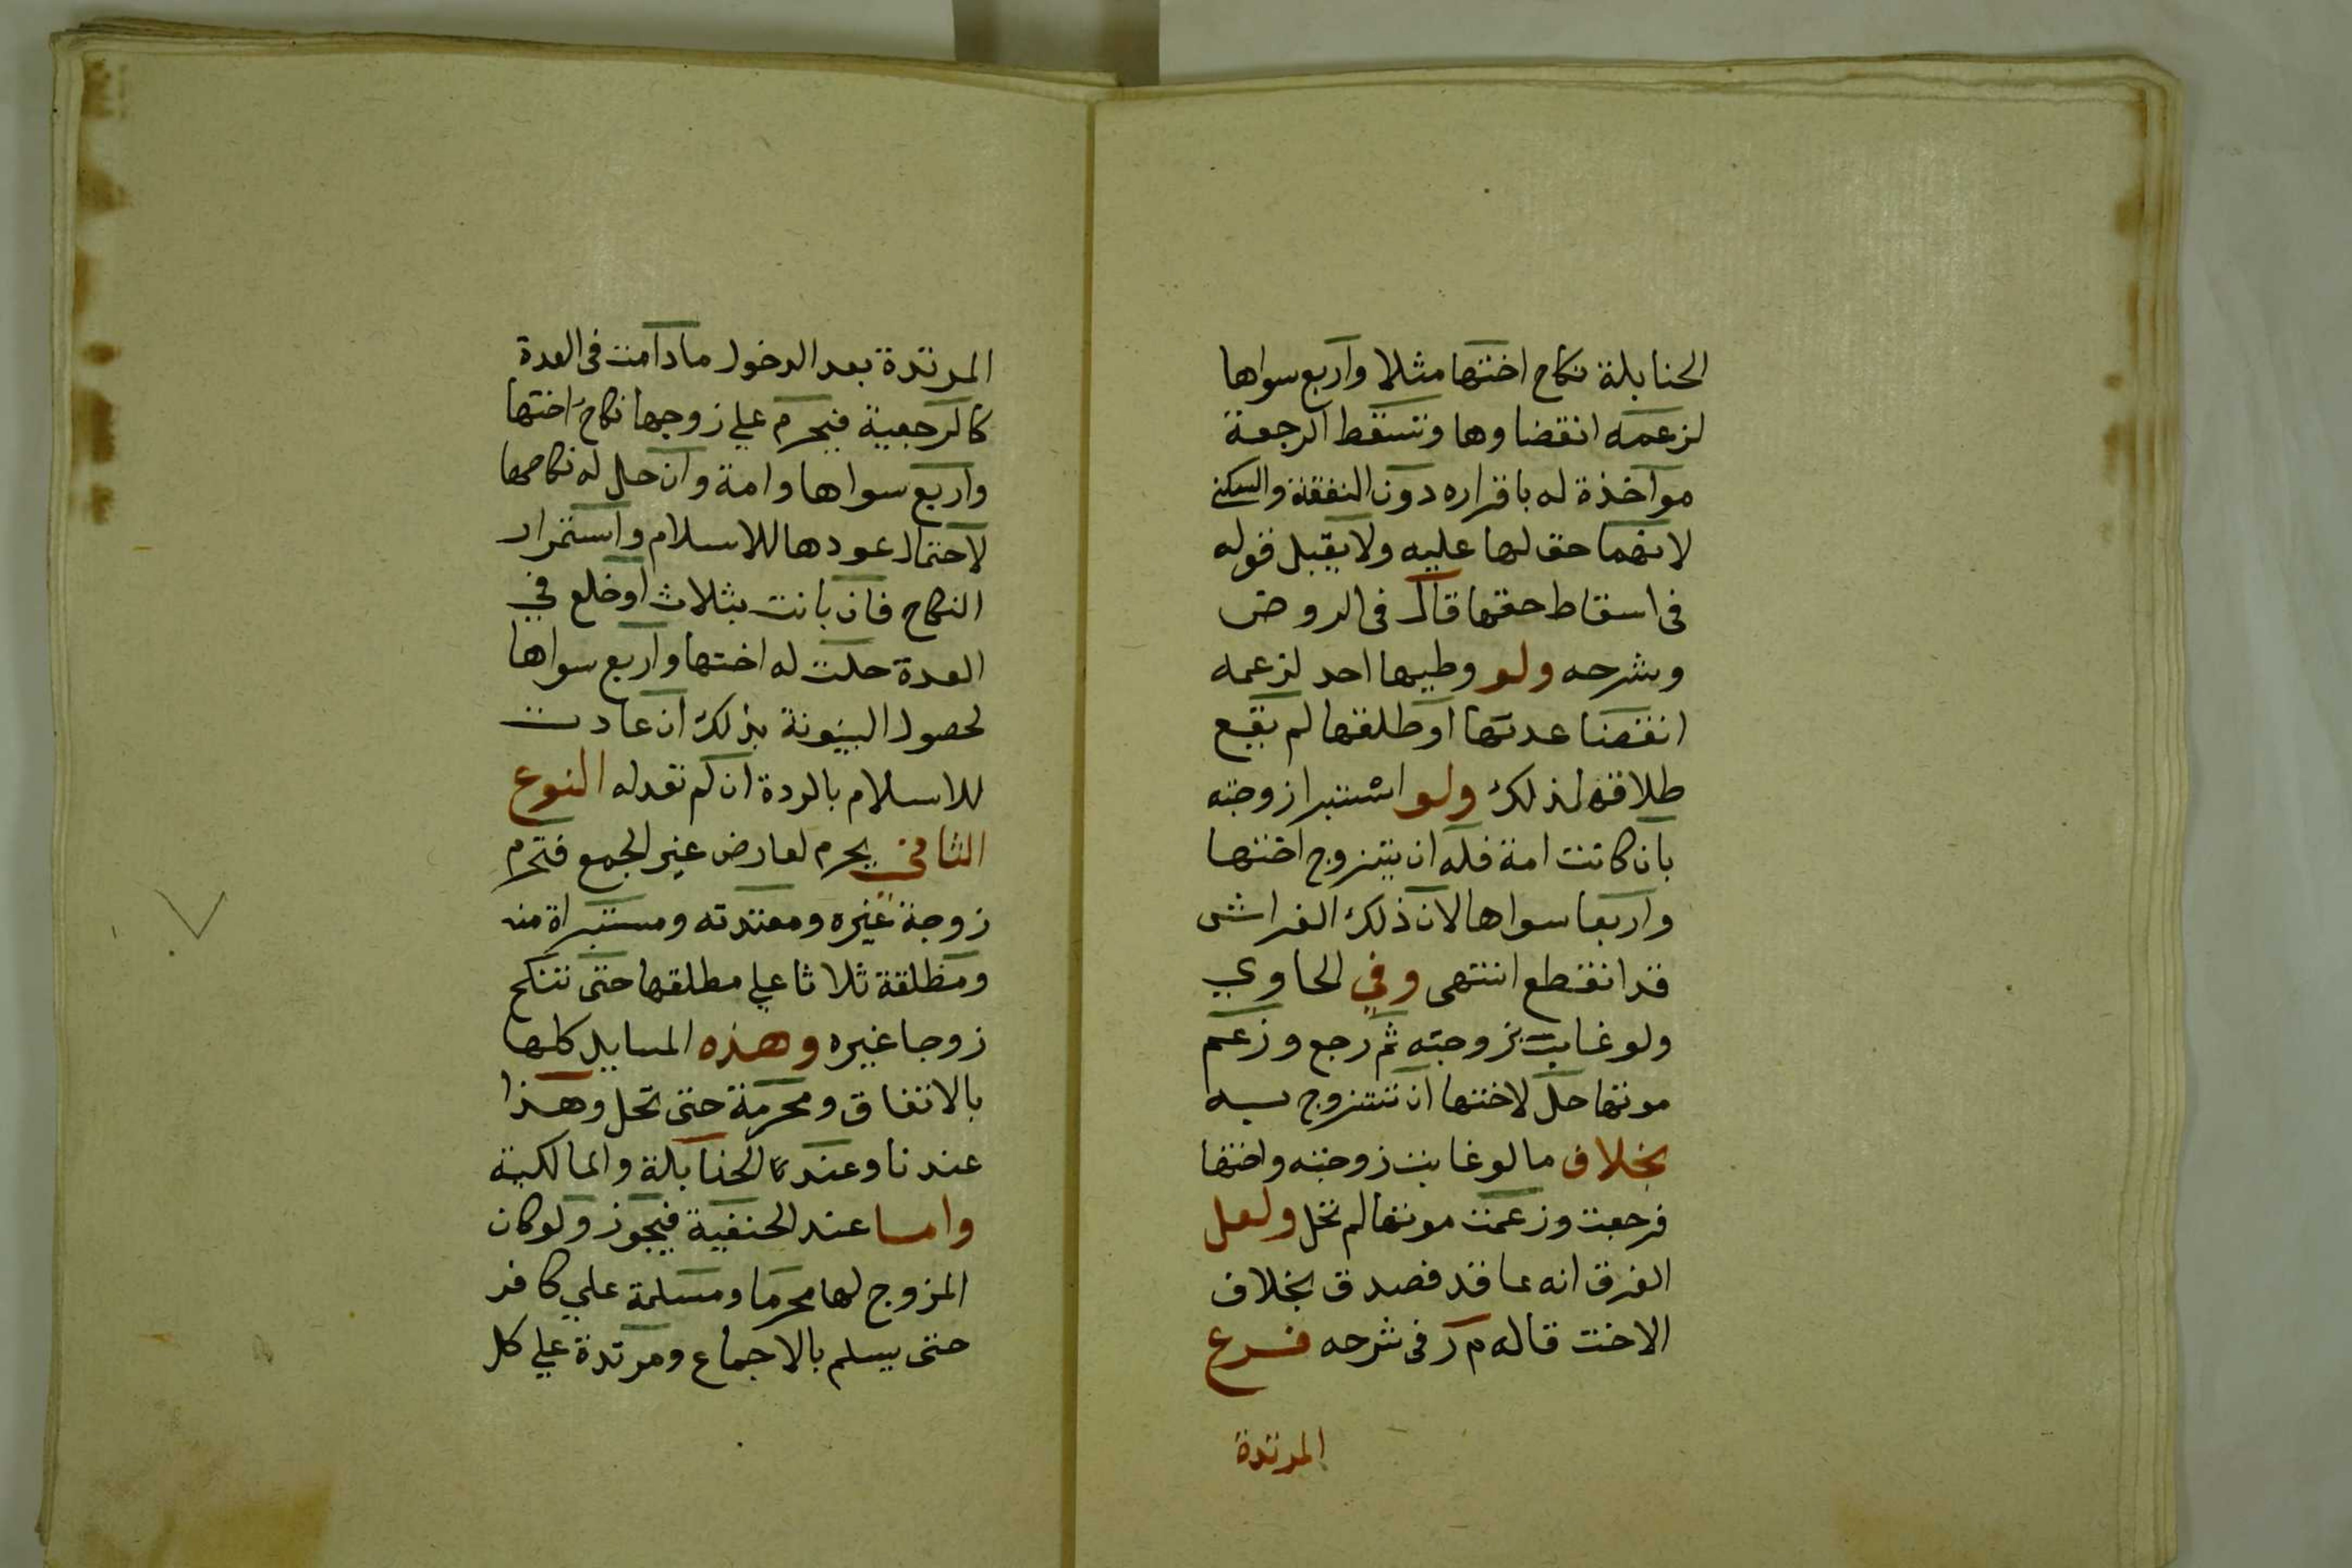 الحنابلة نكاح اختها مثلا واربع سواها
لزعمه انقضاوها وتسقط الرجعة
مواخذة له باقراره دون النفقة والسكنى
لانهما حق لها عليه ولا يقبل قوله
فى اسقاط حقها قال فى الروض
وشرحه ولو وطيها احد لزعمه
انقضا عدتها او طلقها لم يقع
طلاقه لذلك ولو استبرا زوجته
بان كانت امة فله ان يتزوج اختها
واربعا سواها لان ذلك الفراش
قد انقطع انتهى وفي الحاوي
ولو غاب بزوجته ثم رجع وزعم
موتها حل لاختها ان تتزوج به
بخلاف ما لو غابت زوجته واختها
فرجعت وزعمت موتها لم تحل ولعل
الفرق انه عاقد فصدق بخلاف
الاخت قاله م ر فى شرحه فرع
المرتدة
المرتدة بعد الدخول مادامت فى العدة
كالرجعية فيحرم علي زوجها نكاح اختها
واربع سواها وامة وان حل له نكاحها
لاحتمال عودها للاسلام واستمرار
النكاح فان بانت بثلاث او خلع في
العدة حلت له اختها واربع سواها
لحصول البينونة بذلك ان عادت
للاسلام بالردة ان لم تعد له النوع
الثاني يحرم لعارض غير الجمع فتحرم
زوجة غيره ومعتدته ومستبراة منه
ومطلقة ثلاثا علي مطلقها حتى تنكح
زوجا غيره وهذه المسايل كلها
بالاتفاق ومحرمة حتى تحل وهذا
عندنا وعند الحنابلة والمالكية
واما عند الحنفية فيجوز ولو كان
المزوج لها محرما ومسلمة علي كافر
حتى يسلم بالاجماع ومرتدة علي كل